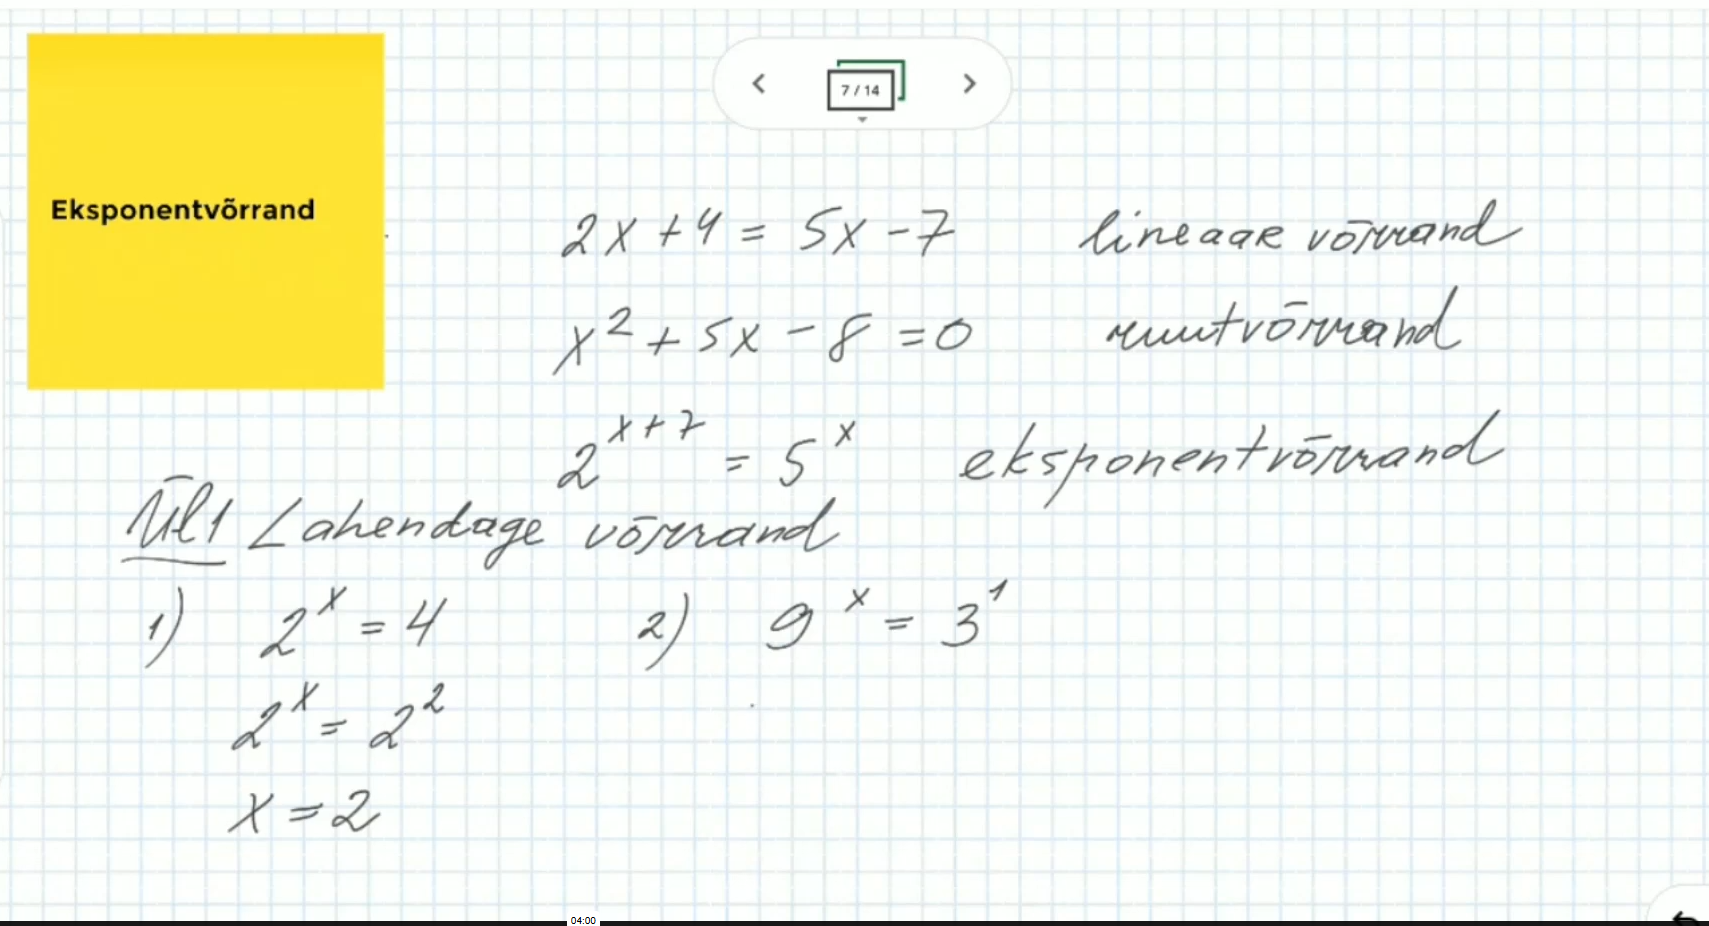 7 / 14
Eksponentvõrrand
2x + 4 = 5x - 7 lineaar võrrand
x² + 5x - 8 = 0 ruutvõrrand
2^(x+7) = 5^x eksponentvõrrand
Ül 1 Lahendage võrrand
1) 2^x = 4 2) 9^x = 3^1
2^x = 2^2
x = 2
04:00